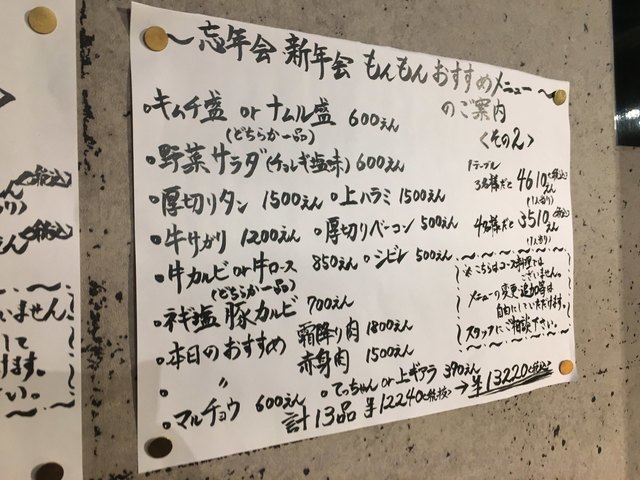 ～忘年会 新年会 もんもん おすすめメニュー～
のご案内
〈その2〉
・キムチ盛 or ナムル盛 600えん
(どちらか一品)
・野菜サラダ(チョレギ塩味) 600えん
・厚切りタン 1500えん ・上ハラミ 1500えん
・牛サガリ 1200えん ・厚切りベーコン 500えん
・牛カルビ or 牛ロース 850えん ・シビレ 500えん
(どちらか一品)
・ネギ塩 豚カルビ 700えん
・本日のおすすめ 霜降り肉 1800えん
・ 〃 赤身肉 1500えん
・マルチョウ 600えん ・てっちゃん or 上ギアラ 390えん
計13品 ¥12240(税抜) → ¥13220(税込)
1テーブル
3名様だと 4610えん(税込)
(1人当り)
4名様だと 3510えん(税込)
(1人当り)
※こちらはコース料理では
ございません。
メニューの変更・追加等は
自由にしていただけます。
スタッフにご相談下さい。
(税込)
(税込)
いません。
して
けます。
い。